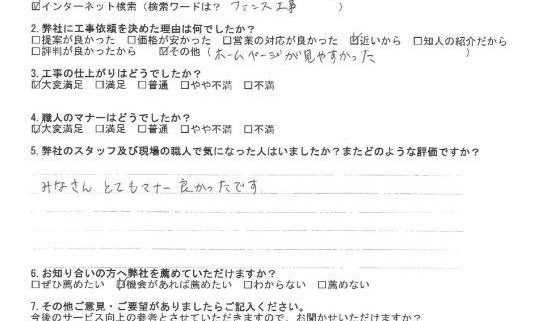 ☑インターネット検索(検索ワードは? フェンス工事 )
2. 弊社に工事依頼を決めた理由は何でしたか?
□提案が良かった □価格が安かった □営業の対応が良かった ☑近いから □知人の紹介だから
□評判が良かったから ☑その他(ホームページが見やすかった )
3. 工事の仕上がりはどうでしたか?
☑大変満足 □満足 □普通 □やや不満 □不満
4. 職人のマナーはどうでしたか?
☑大変満足 □満足 □普通 □やや不満 □不満
5. 弊社のスタッフ及び現場の職人で気になった人はいましたか?またどのような評価ですか?
みなさん とてもマナー良かったです
6. お知り合いの方へ弊社を薦めていただけますか?
□ぜひ薦めたい ☑機会があれば薦めたい □わからない □薦めない
7. その他ご意見・ご要望がありましたらご記入ください。
今後のサービス向上の参考とさせていただきますので、お聞かせいただけますか?